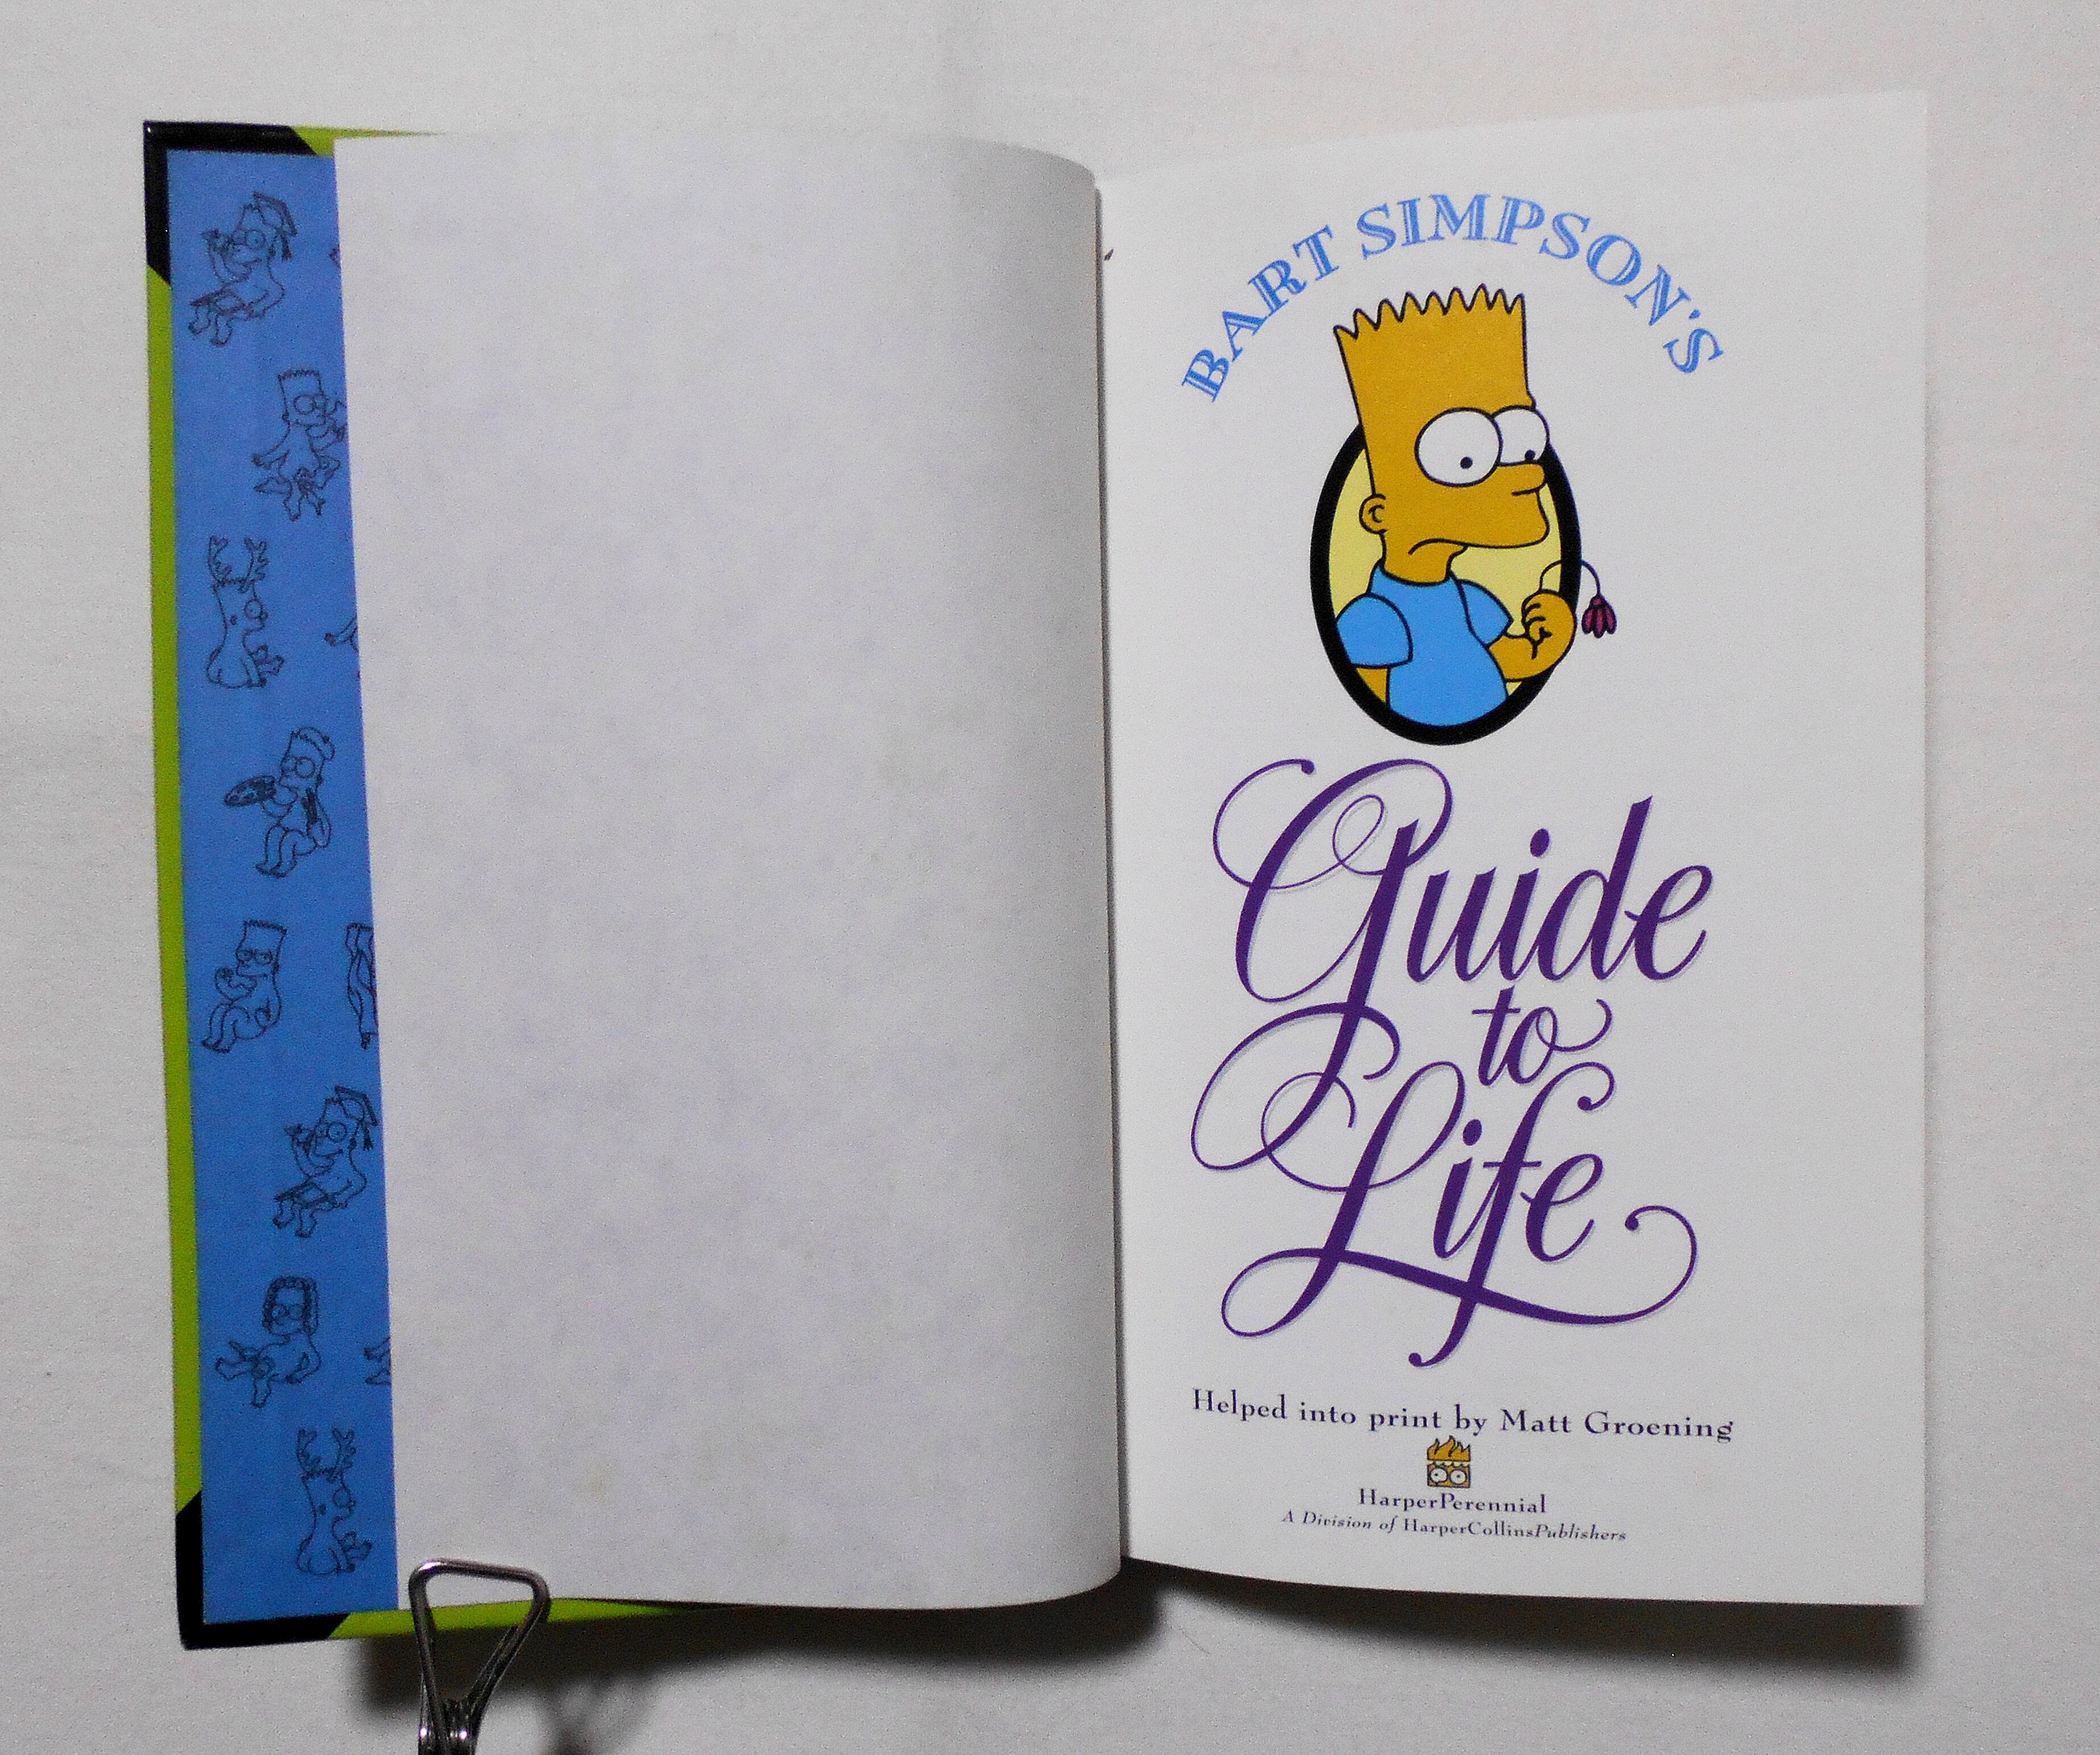 BART SIMPSON'S
Guide
to
Life
Helped into print by Matt Groening
HarperPerennial
A Division of HarperCollinsPublishers